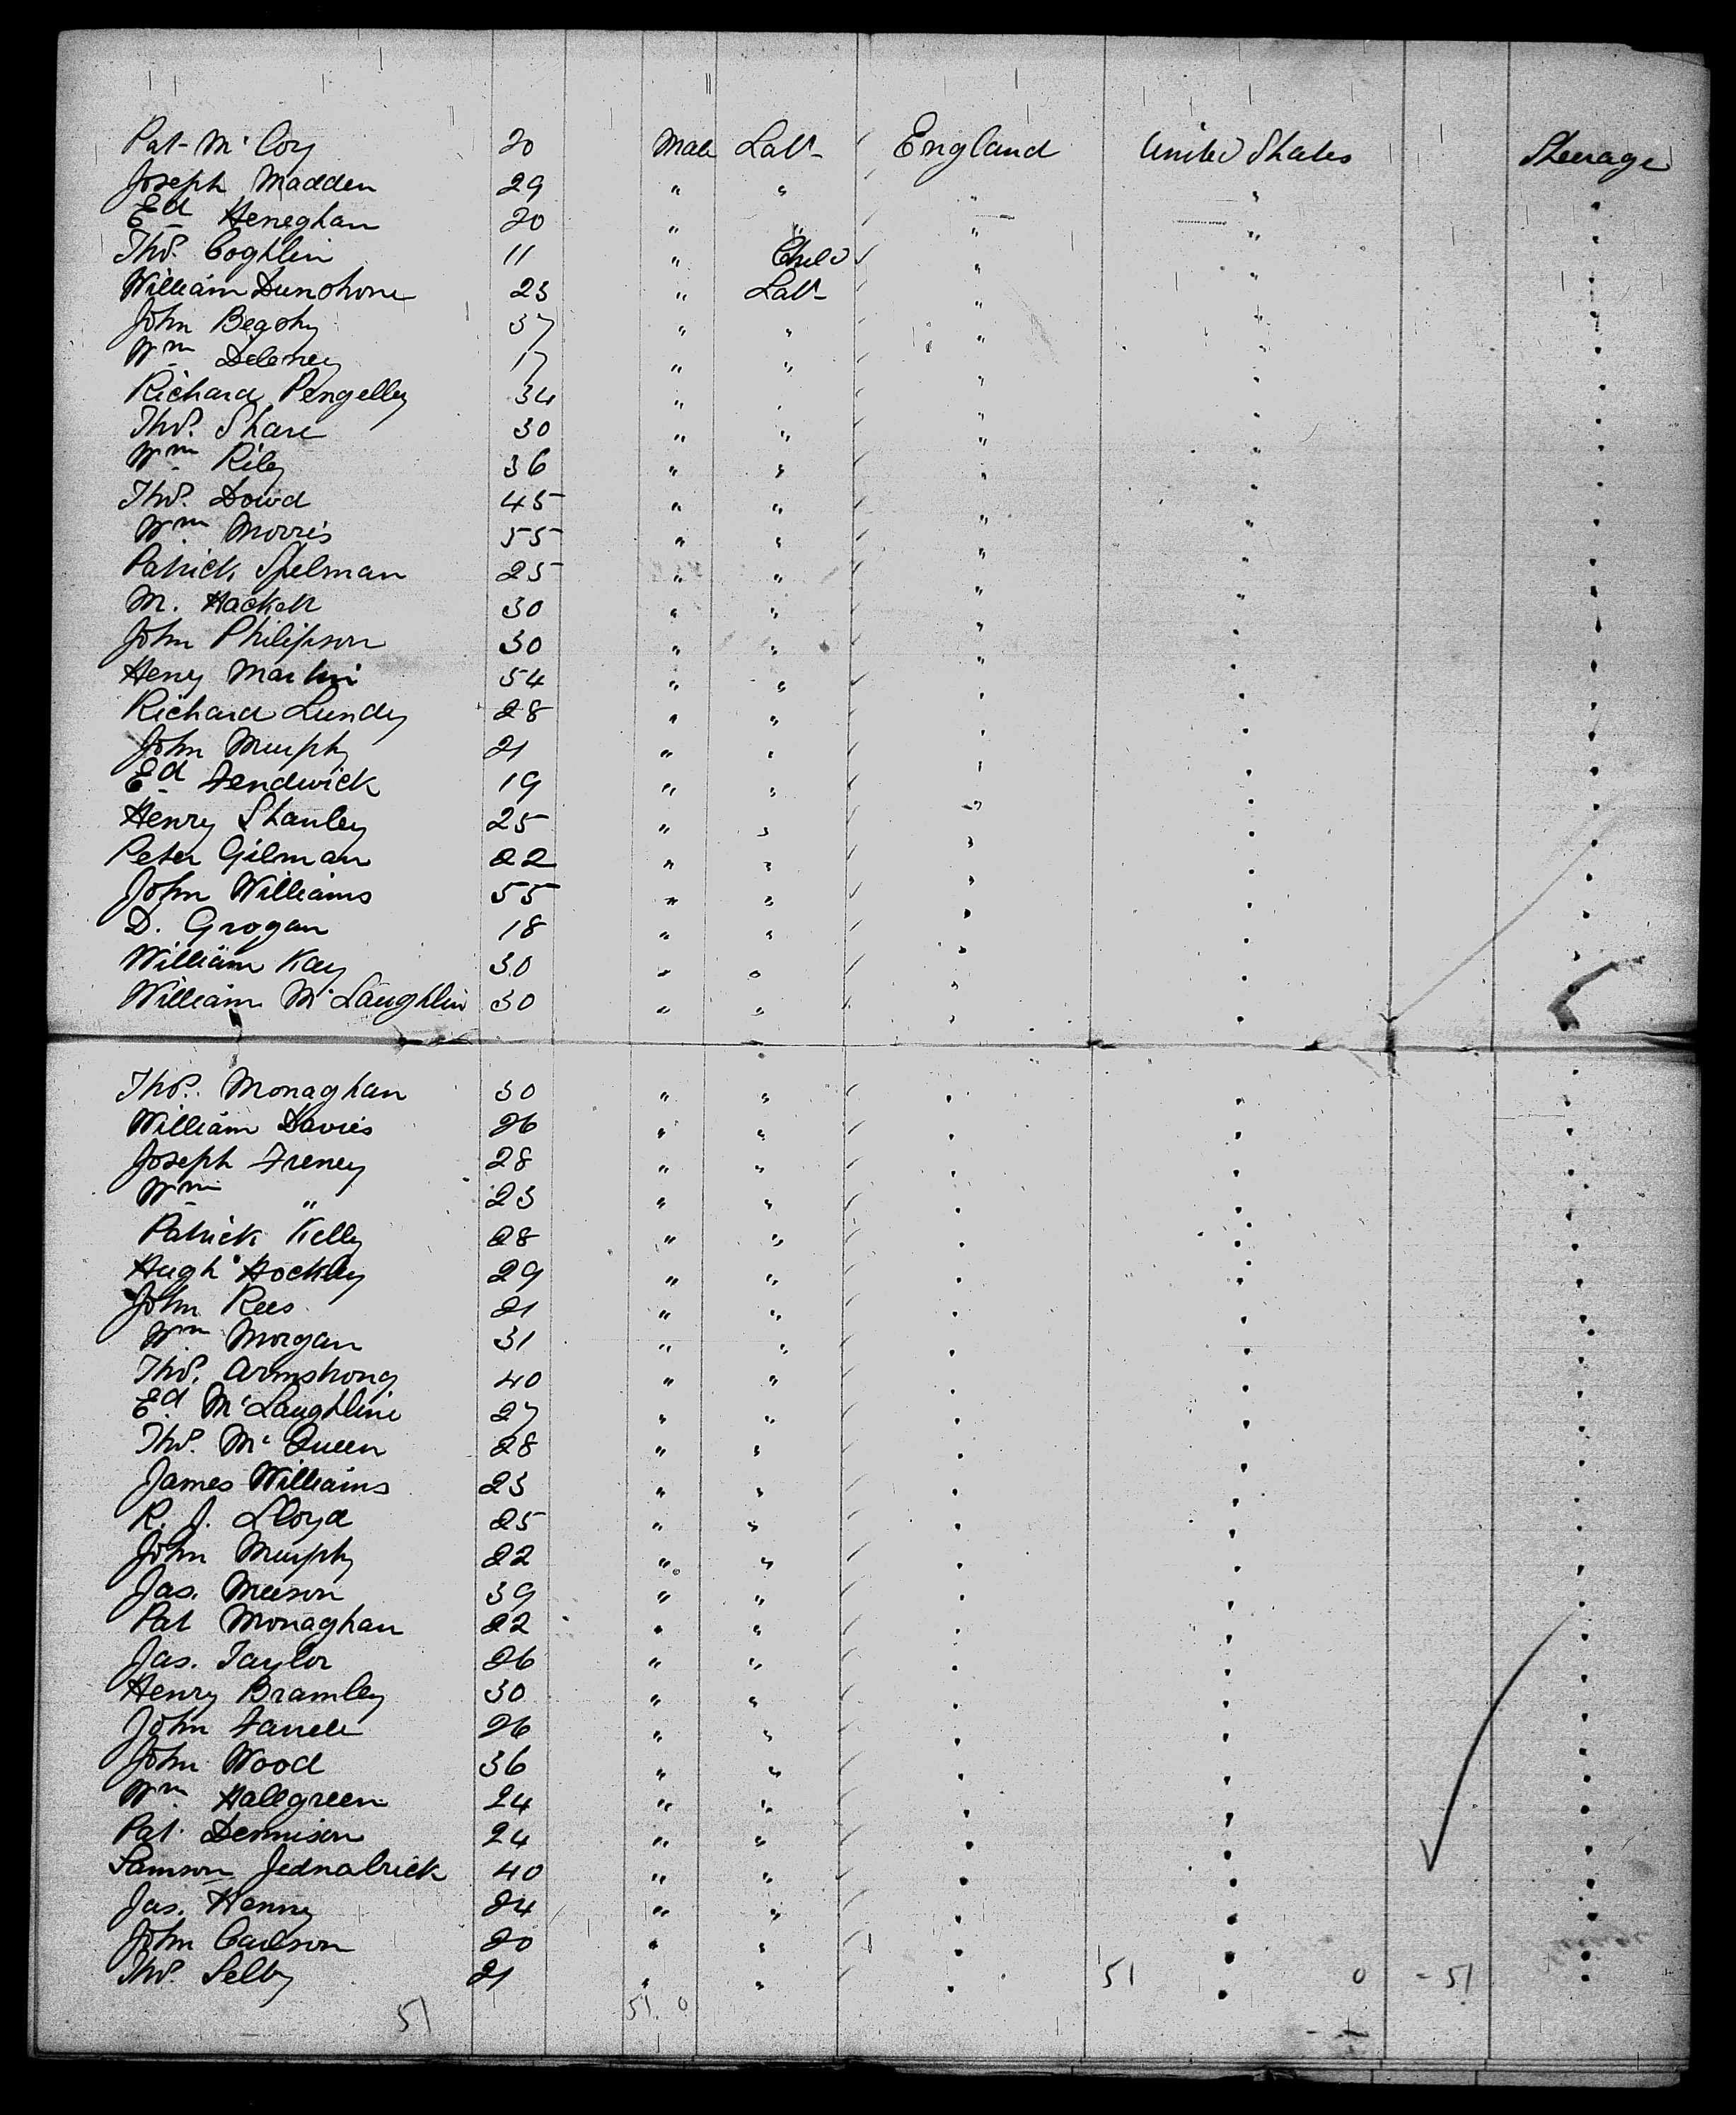 Pat- McCoy 20 Male Labr England United States Steerage
Joseph Madden 29 " " " " "
Ed Heneghan 20 " " " " "
Thos. Coghlin 11 " Child " " "
William Dunohone 23 " Labr " " "
John Begohy 37 " " " " "
Wm Delaney 17 " " " " "
Richard Pengelley 34 " " " " "
Thos. Share 30 " " " " "
Wm Riley 36 " " " " "
Thos. Dowd 45 " " " " "
Wm Morris 55 " " " " "
Patrick Spelman 25 " " " " "
M. Hackett 30 " " " " "
John Philipson 30 " " " " "
Henry Martin 54 " " " " "
Richard Lundy 28 " " " " "
John Murphy 21 " " " " "
Ed Fendwick 19 " " " " "
Henry Stanley 25 " " " " "
Peter Gilman 22 " " " " "
John Williams 55 " " " " "
D. Grogan 18 " " " " "
William Kay 30 " " " " "
William McLaughlin 30 " " " " "
Thos. Monaghan 30 " " " " "
William Davies 26 " " " " "
Joseph Freney 28 " " " " "
Wm " 23 " " " " "
Patrick Kelly 28 " " " " "
Hugh Hockley 29 " " " " "
John Rees 21 " " " " "
Wm Morgan 31 " " " " "
Thos. Armstrong 40 " " " " "
Ed McLaughline 27 " " " " "
Thos. McQueen 28 " " " " "
James Williams 23 " " " " "
R. J. Lloyd 25 " " " " "
John Murphy 22 " " " " "
Jas. Meeson 39 " " " " "
Pat Monaghan 22 " " " " "
Jas. Taylor 26 " " " " "
Henry Bramley 30 " " " " "
John Farrell 26 " " " " "
John Wood 36 " " " " "
Wm Hallgreen 24 " " " " "
Pat. Dennison 24 " " " " "
Samson Jednabrick 40 " " " " "
Jas. Henny 24 " " " " "
John Carlson 20 " " " " "
Thos. Selby 21 " " " 51 " 0 = 51 "
51 51 0